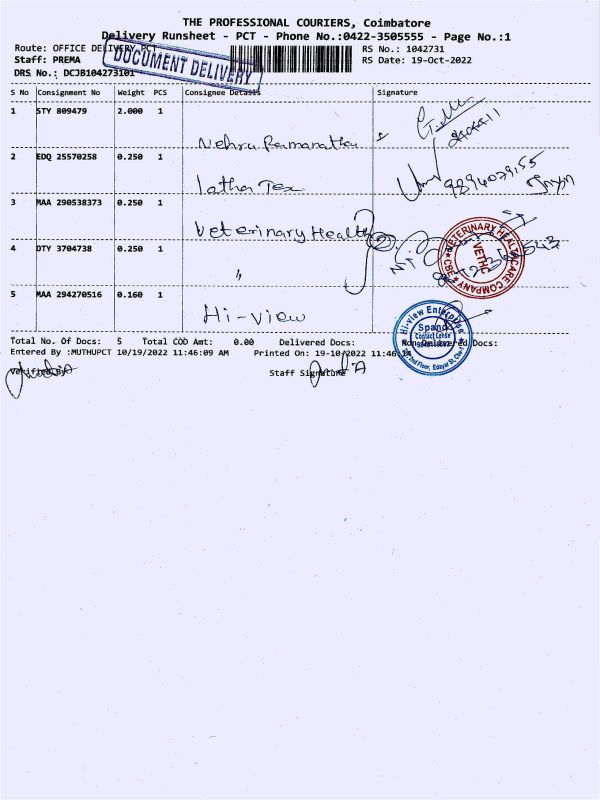 THE PROFESSIONAL COURIERS, Coimbatore
Delivery Runsheet - PCT - Phone No.:0422-3505555 - Page No.:1
Route: OFFICE DELIVERY PCT
RS No.: 1042731
Staff: PREMA
RS Date: 19-Oct-2022
DOCUMENT DELIVERY
DRS No.: DCJB104273101
S No Consignment No Weight PCS Consignee Details Signature
1 STY 809479 2.000 1 Nehru Ramanatha
2 EDQ 25570258 0.250 1 Latha Tex
3 MAA 290538373 0.250 1 Veterinary Health
VETERINARY HEALTHCARE COMPANY
VETHC
CBE
4 DTY 3704738 0.250 1 "
5 MAA 294270516 0.160 1 Hi-view
Hi-view Enterprise
Spand
Contact Lense
2nd Floor,
Total No. Of Docs: 5 Total COD Amt: 0.00 Delivered Docs: Non-Delivered Docs:
Entered By :MUTHUPCT 10/19/2022 11:46:09 AM Printed On: 19-10-2022 11:46
Verified By
Staff Signature